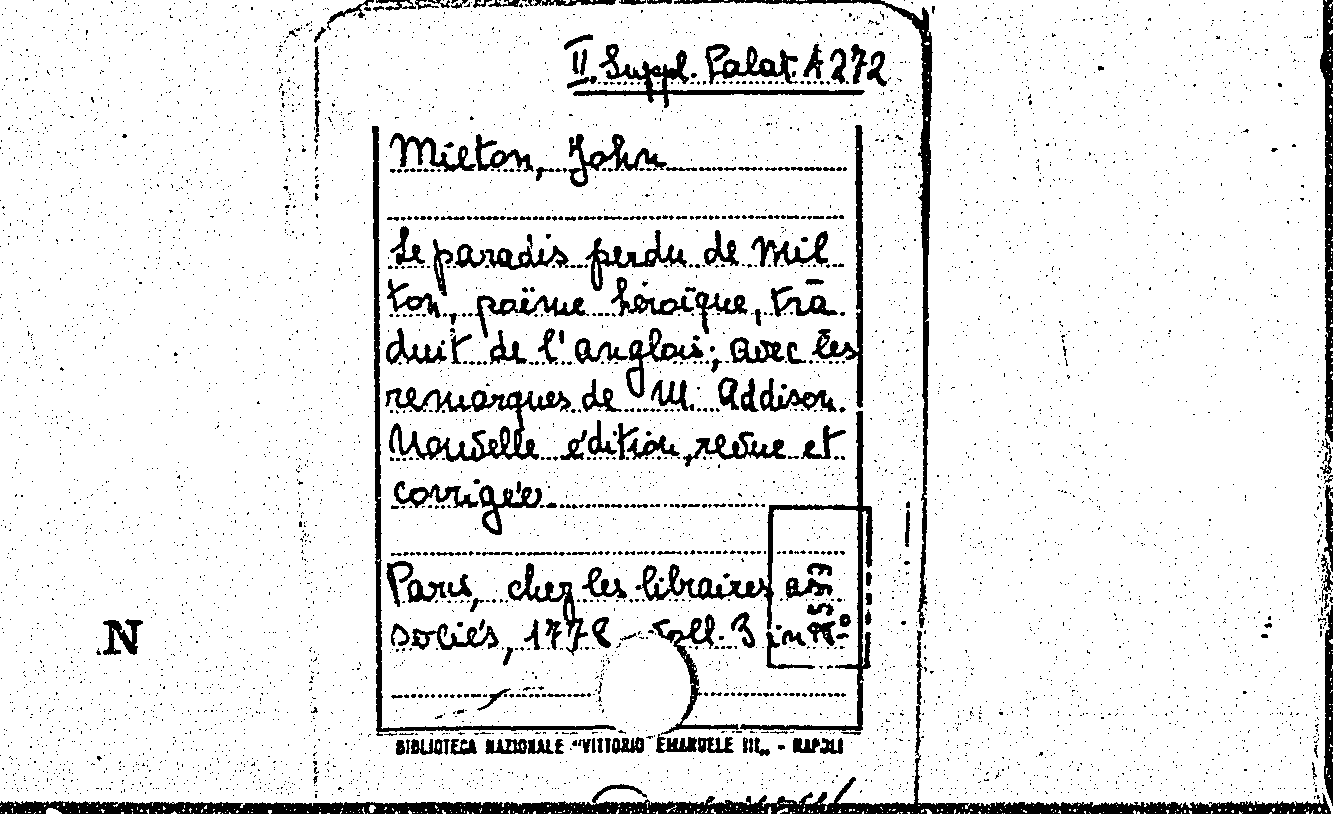 II. Suppl. Palat. A 272
Milton, John
Le paradis perdu de Mil
ton, poëme héroïque, trā
duit de l'anglois; avec les
remarques de M. Addison.
Nouvelle édition, revue et
corrigée.
Paris, chez les libraires as
sociés, 1778 voll. 3 in
N
BIBLIOTECA NAZIONALE "VITTORIO EMANUELE III„ - NAPOLI